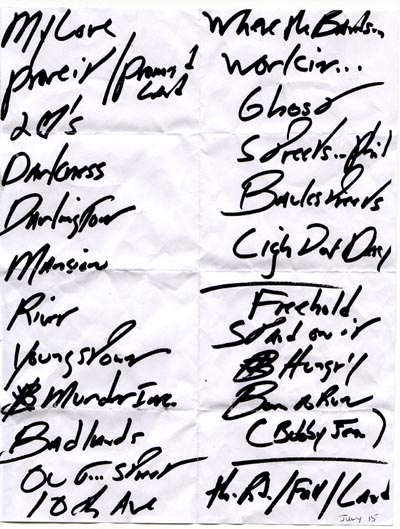 My Love
Prove it / Promised
Land
2 ♡'s
Darkness
Darlington
Mansion
River
Youngstown
Murder Inc.
Badlands
Out... Street
10th Ave
Where the Bands
Workin...
Ghost
Streets...Phil
Backstreets
Light Of Day
Freehold
Stand on it
Hungry
Born to Run
(Bobby Jean)
th. Rd./Fall/Land
July 15